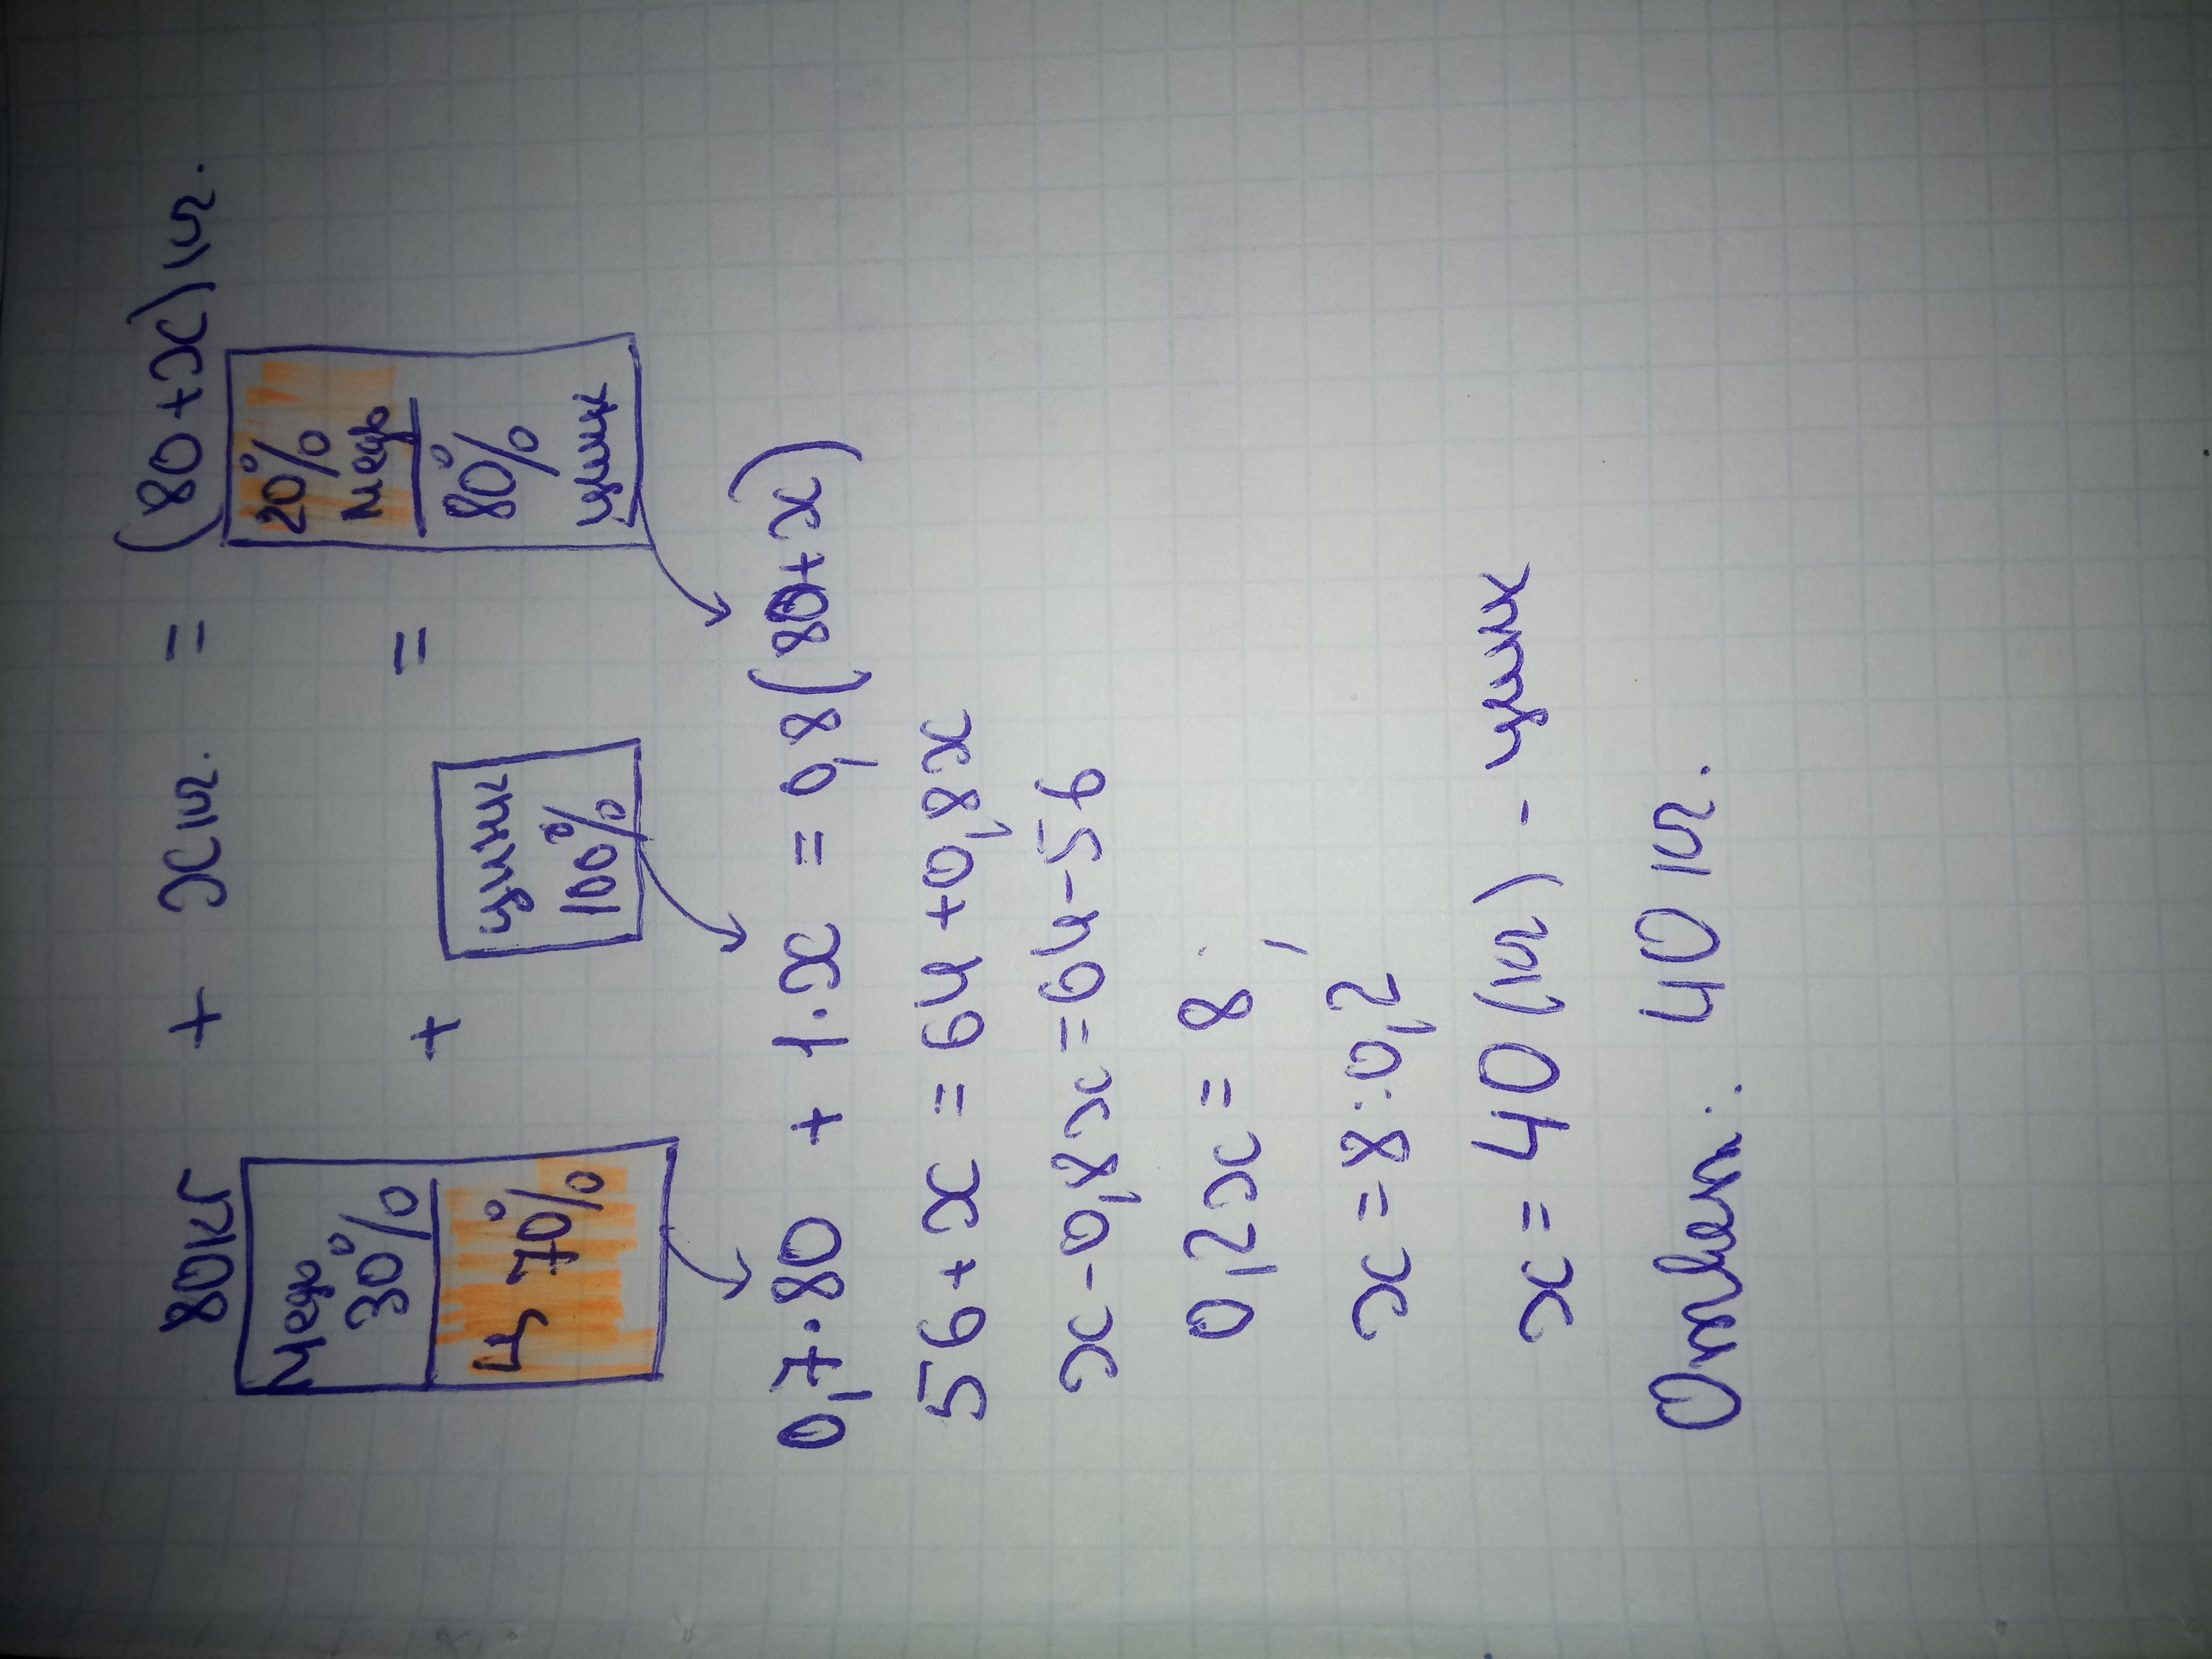 80кг + x кг. = (80+x) кг.
Медь 30% + цинк 100% = 20% медь
ц 70% 80% цинк
0,7·80 + 1·x = 0,8(80+x)
56+x = 64+0,8x
x-0,8x=64-56
0,2x = 8;
x=8:0,2
x=40(кг) - цинк
Ответ: 40 кг.